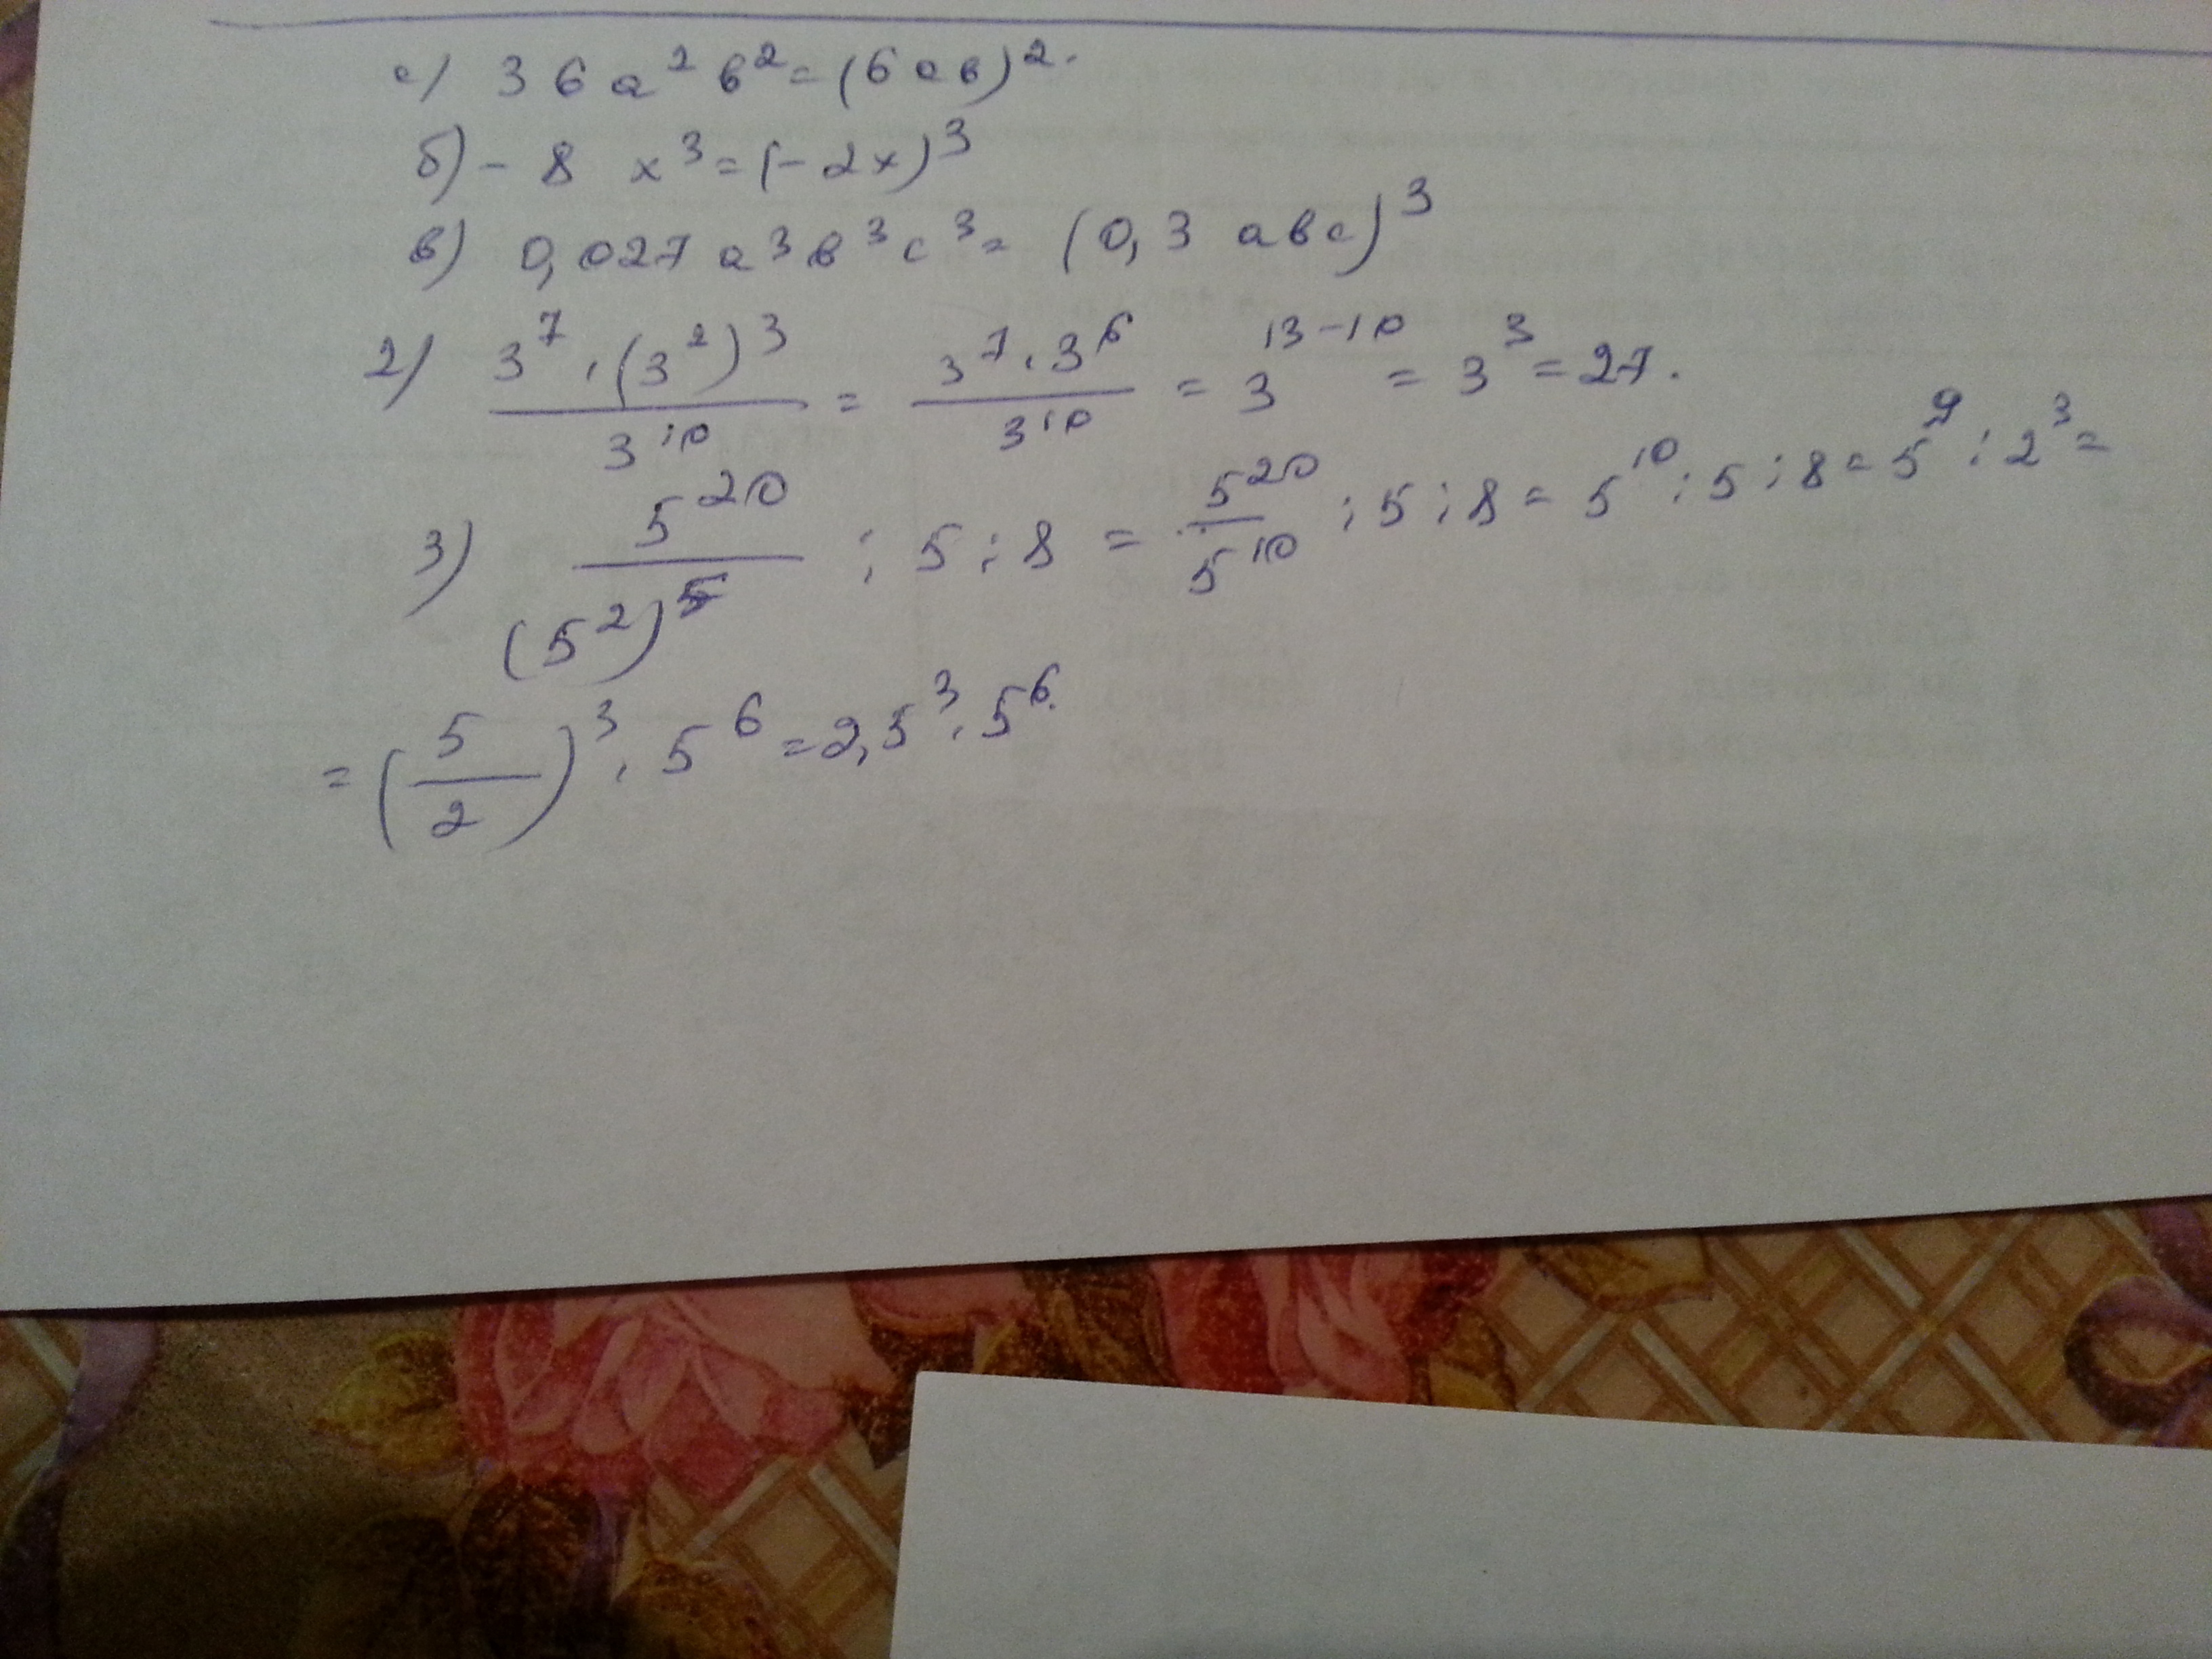 а) 36a²b²=(6ab)².
б) - 8 x³=(-2x)³
в) 0,027a³b³c³= (0,3 abc)³
2) 3⁷·(3²)³/3¹⁰ = 3⁷·3⁶/3¹⁰ = 3¹³⁻¹⁰ = 3³ = 27.
3) 5²⁰/(5²)⁵ : 5 : 8 = 5²⁰/5¹⁰ : 5 : 8 = 5¹⁰ : 5 : 8 = 5⁹ : 2³ =
= (5/2)³ · 5⁶ = 2,5³ · 5⁶.